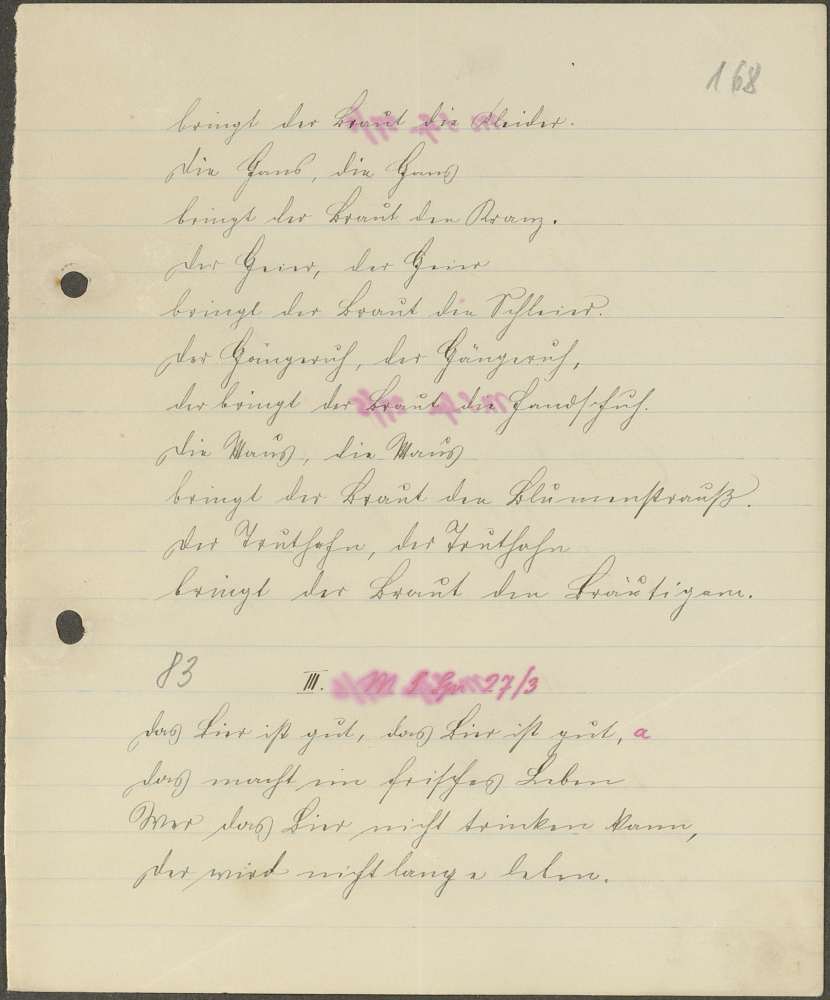 168
bringt der Braut die Kleider.
Die Gans, die Gans
bringt der Braut den Kranz.
Der Geier, der Geier
bringt der Braut den Schleier.
Der Gängeruh, der Gängeruh,
der bringt der Braut die Handschuh.
Die Maus, die Maus
bringt der Braut den Blumenstrauß.
Der Truthahn, der Truthahn
bringt der Braut den Bräutigam.
83
III. M 27/3
Das Bier ist gut, das Bier ist gut, a
das macht ein frisches Leben
Wer das Bier nicht trinken kann,
der wird nicht lange leben.